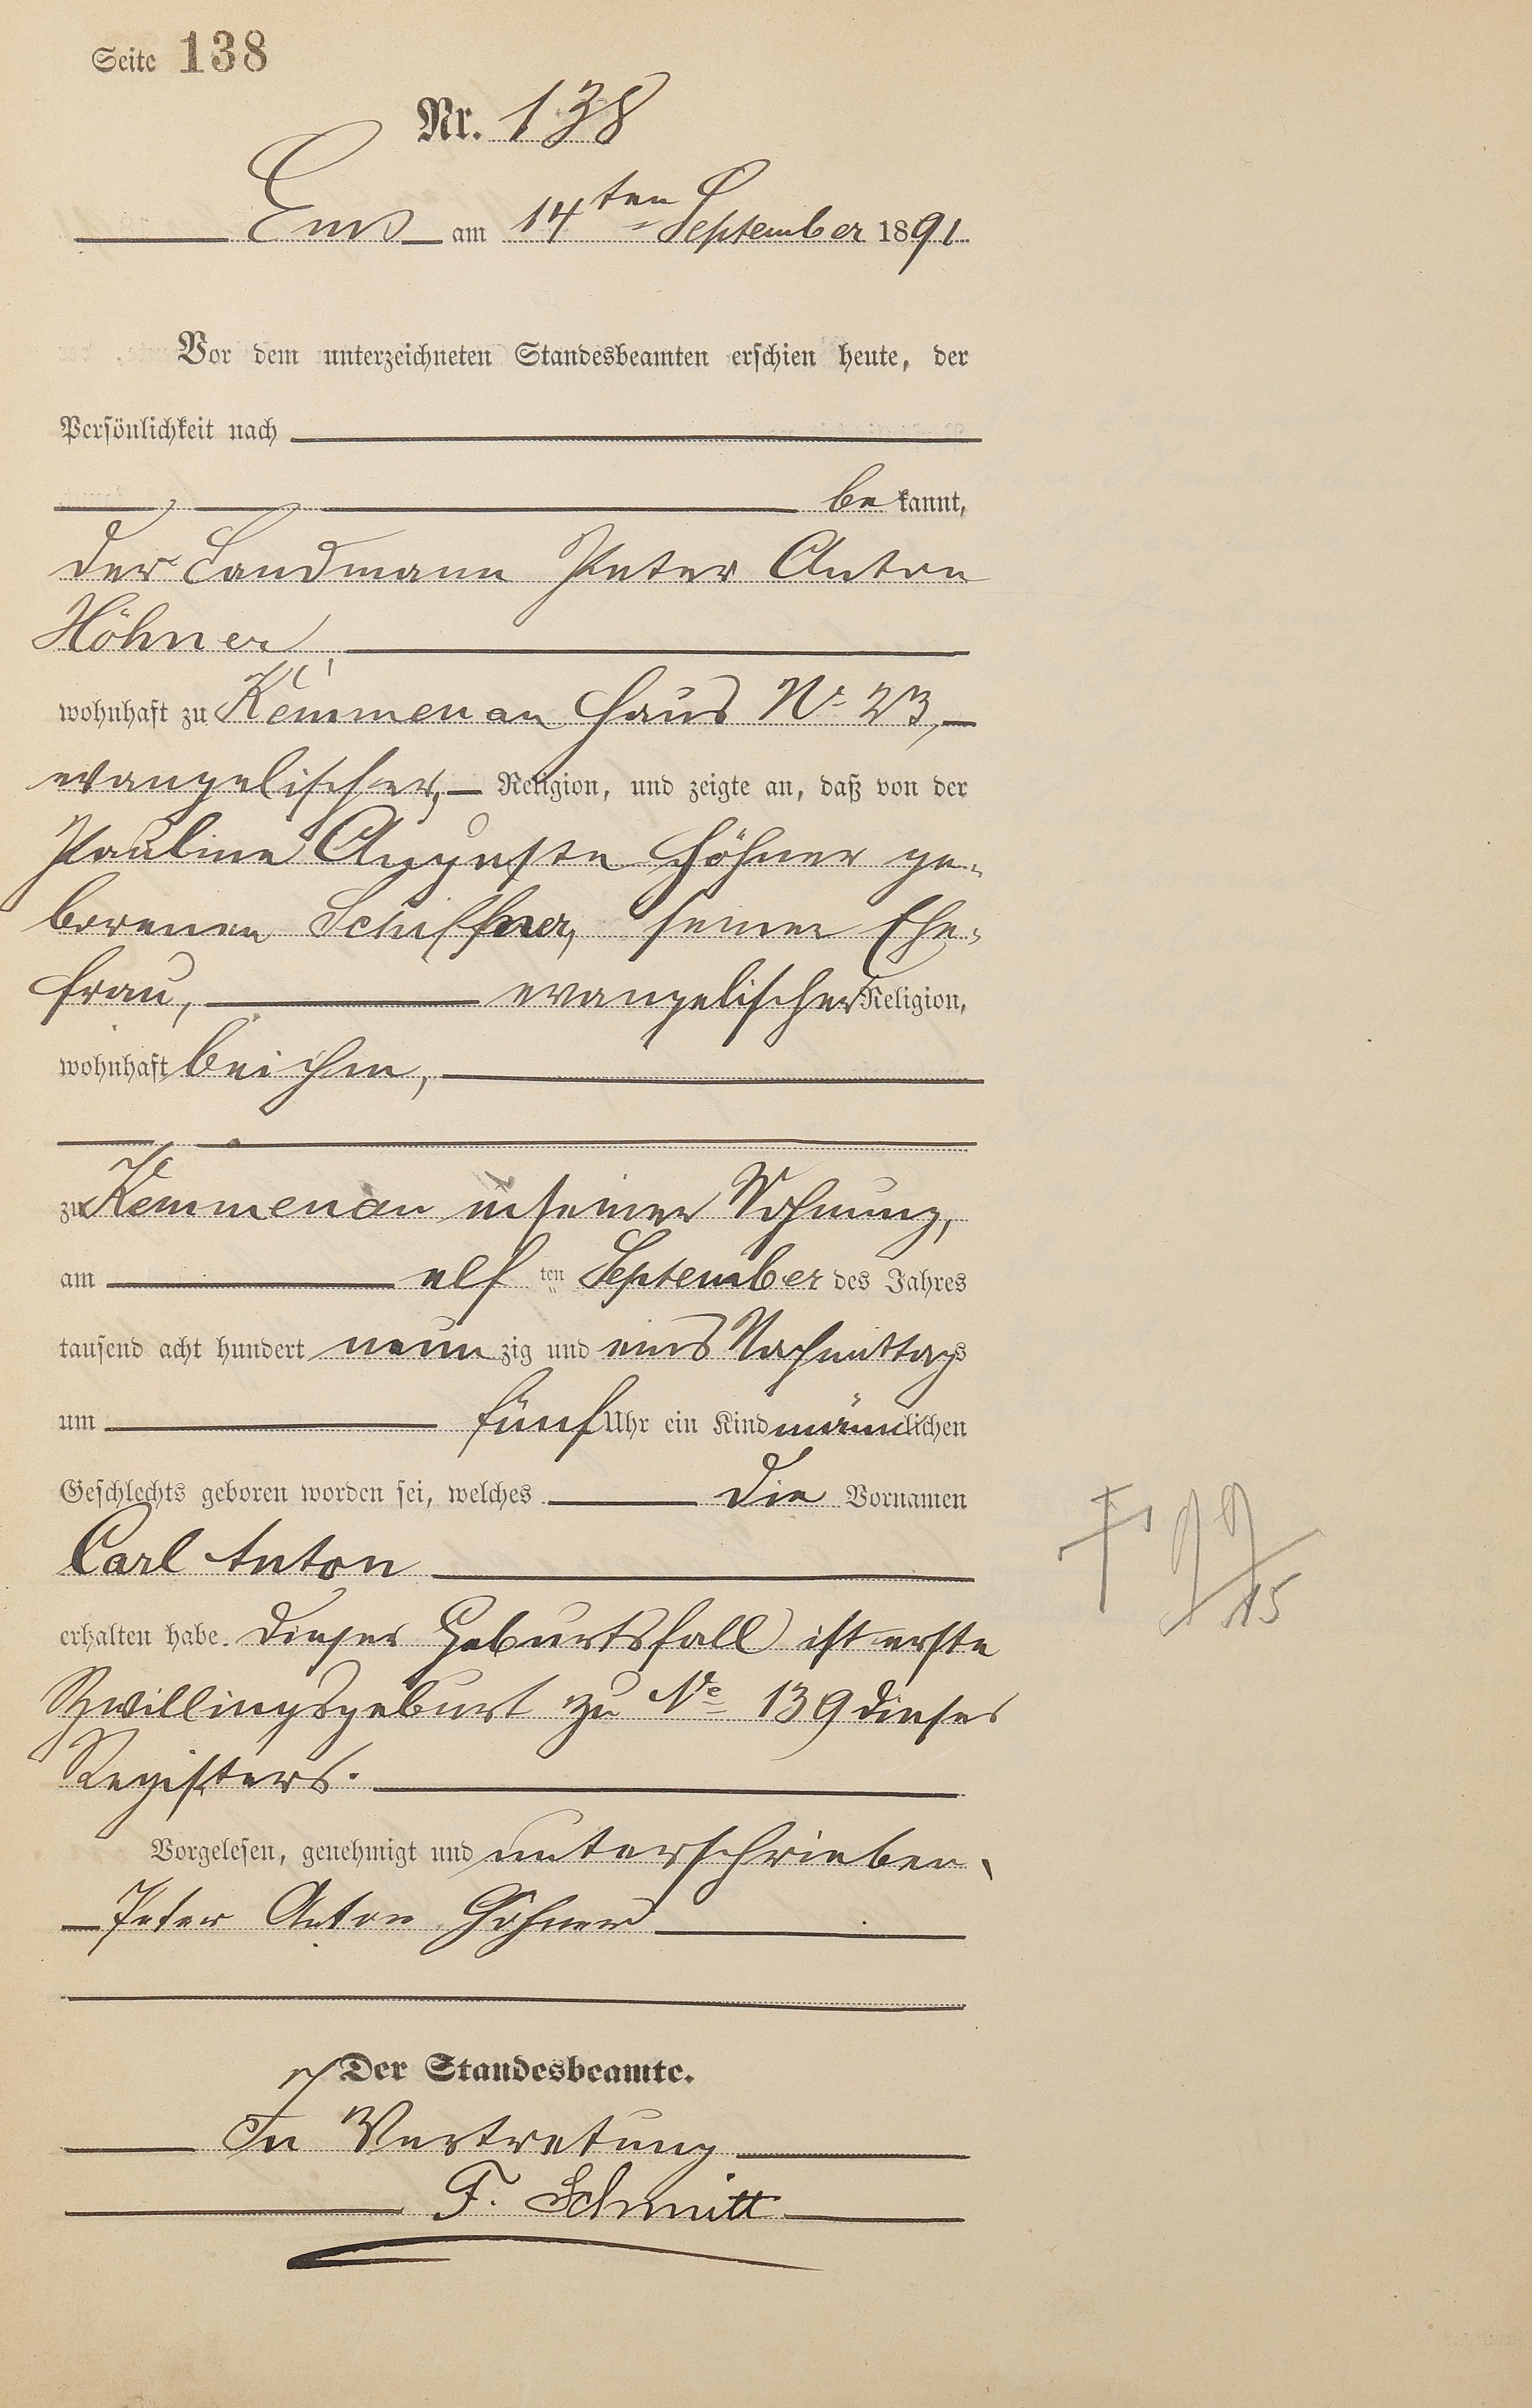 Seite 138
Nr. 138
Ems am 14ten September 1891.
Vor dem unterzeichneten Standesbeamten erschien heute, der
Persönlichkeit nach
bekannt,
der Landmann Peter Anton
Höhner
wohnhaft zu Kemmenau Haus No 23,
evangelischer, Religion, und zeigte an, daß von der
Pauline Auguste Höhner ge-
borenen Schiffner, seiner Ehe-
frau, evangelischer Religion,
wohnhaft bei ihm,
zu Kemmenau in seiner Wohnung,
am elften September des Jahres
tausend acht hundert neunzig und eins Nachmittags
um fünf Uhr ein Kind männlichen
Geschlechts geboren worden sei, welches die Vornamen
Carl Anton
erhalten habe. Dieser Geburtsfall ist erste
Zwillingsgeburt zu No 139 dieses
Registers.
Vorgelesen, genehmigt und unterschrieben.
Peter Anton Höhner
Der Standesbeamte.
In Vertretung
F. Schmitt
15